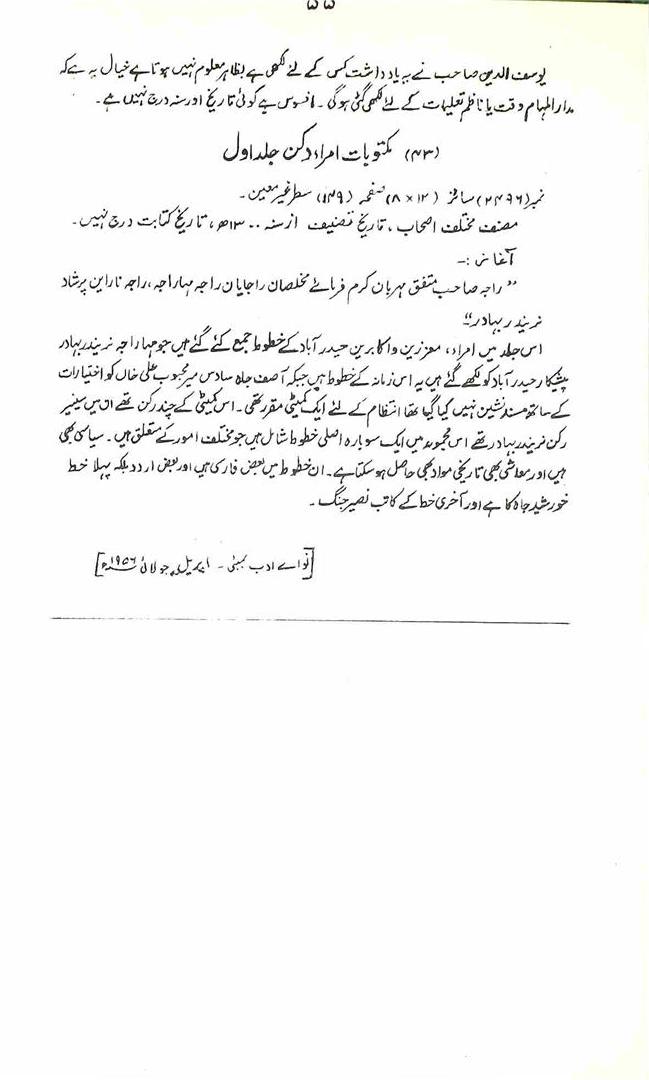 ۵۵
یوسف الدین صاحب نے یہ یاد داشت کس کے لئے لکھی ہے بظاہر معلوم نہیں ہوتا ہے خیال یہ ہے کہ
مدار المہام وقت یا ناظم تعلیمات کے لئے لکھی گئی ہوگی ۔ افسوس ہے کوئی تاریخ اور سنہ درج نہیں ہے ۔
(۴۳) مکتوبات امراء دکن جلد اول
نمبر (۲۴۹۶) سائز (۱۲ × ۸) صفحہ (۱۴۹) سطر غیر معین ۔
مصنف مختلف اصحاب ، تاریخ تصنیف از سنہ ۱۳۰۰ھ ، تاریخ کتابت درج نہیں ۔
آغاز :–
” راجہ صاحب متفق مہربان کرم فرمائے مخلصان راجایان راجہ مہاراجہ ، راجہ نارائن پرشاد
نریندر بہادر “
اس جلد میں امراء ، معززین و اکابرین حیدر آباد کے خطوط جمع کئے گئے ہیں جو مہاراجہ نریندر بہادر
پیشکار حیدر آباد کو لکھے گئے ہیں یہ اس زمانہ کے خطوط ہیں جبکہ آصف جاہ سادس میر محبوب علی خاں کو اختیارات
کے ساتھ مسند نشین نہیں کیا گیا تھا انتظام کے لئے ایک کمیٹی مقرر تھی ۔ اس کمیٹی کے چند رکن تھے ان میں سینیر
رکن نریندر بہادر تھے اس مجموعہ میں ایک سو بارہ اصلی خطوط شامل ہیں جو مختلف امور کے متعلق ہیں ۔ سیاسی بھی
ہیں اور معاشی بھی تاریخی مواد بھی حاصل ہو سکتا ہے ۔ ان خطوط میں بعض فارسی ہیں اور بعض اردو بلکہ پہلا خط
خورشید جاہ کا ہے اور آخری خط کے کاتب نصیر جنگ ۔
[نوائے ادب بمبئی ۔ اپریل، جولائی ۱۹۵۶ء]